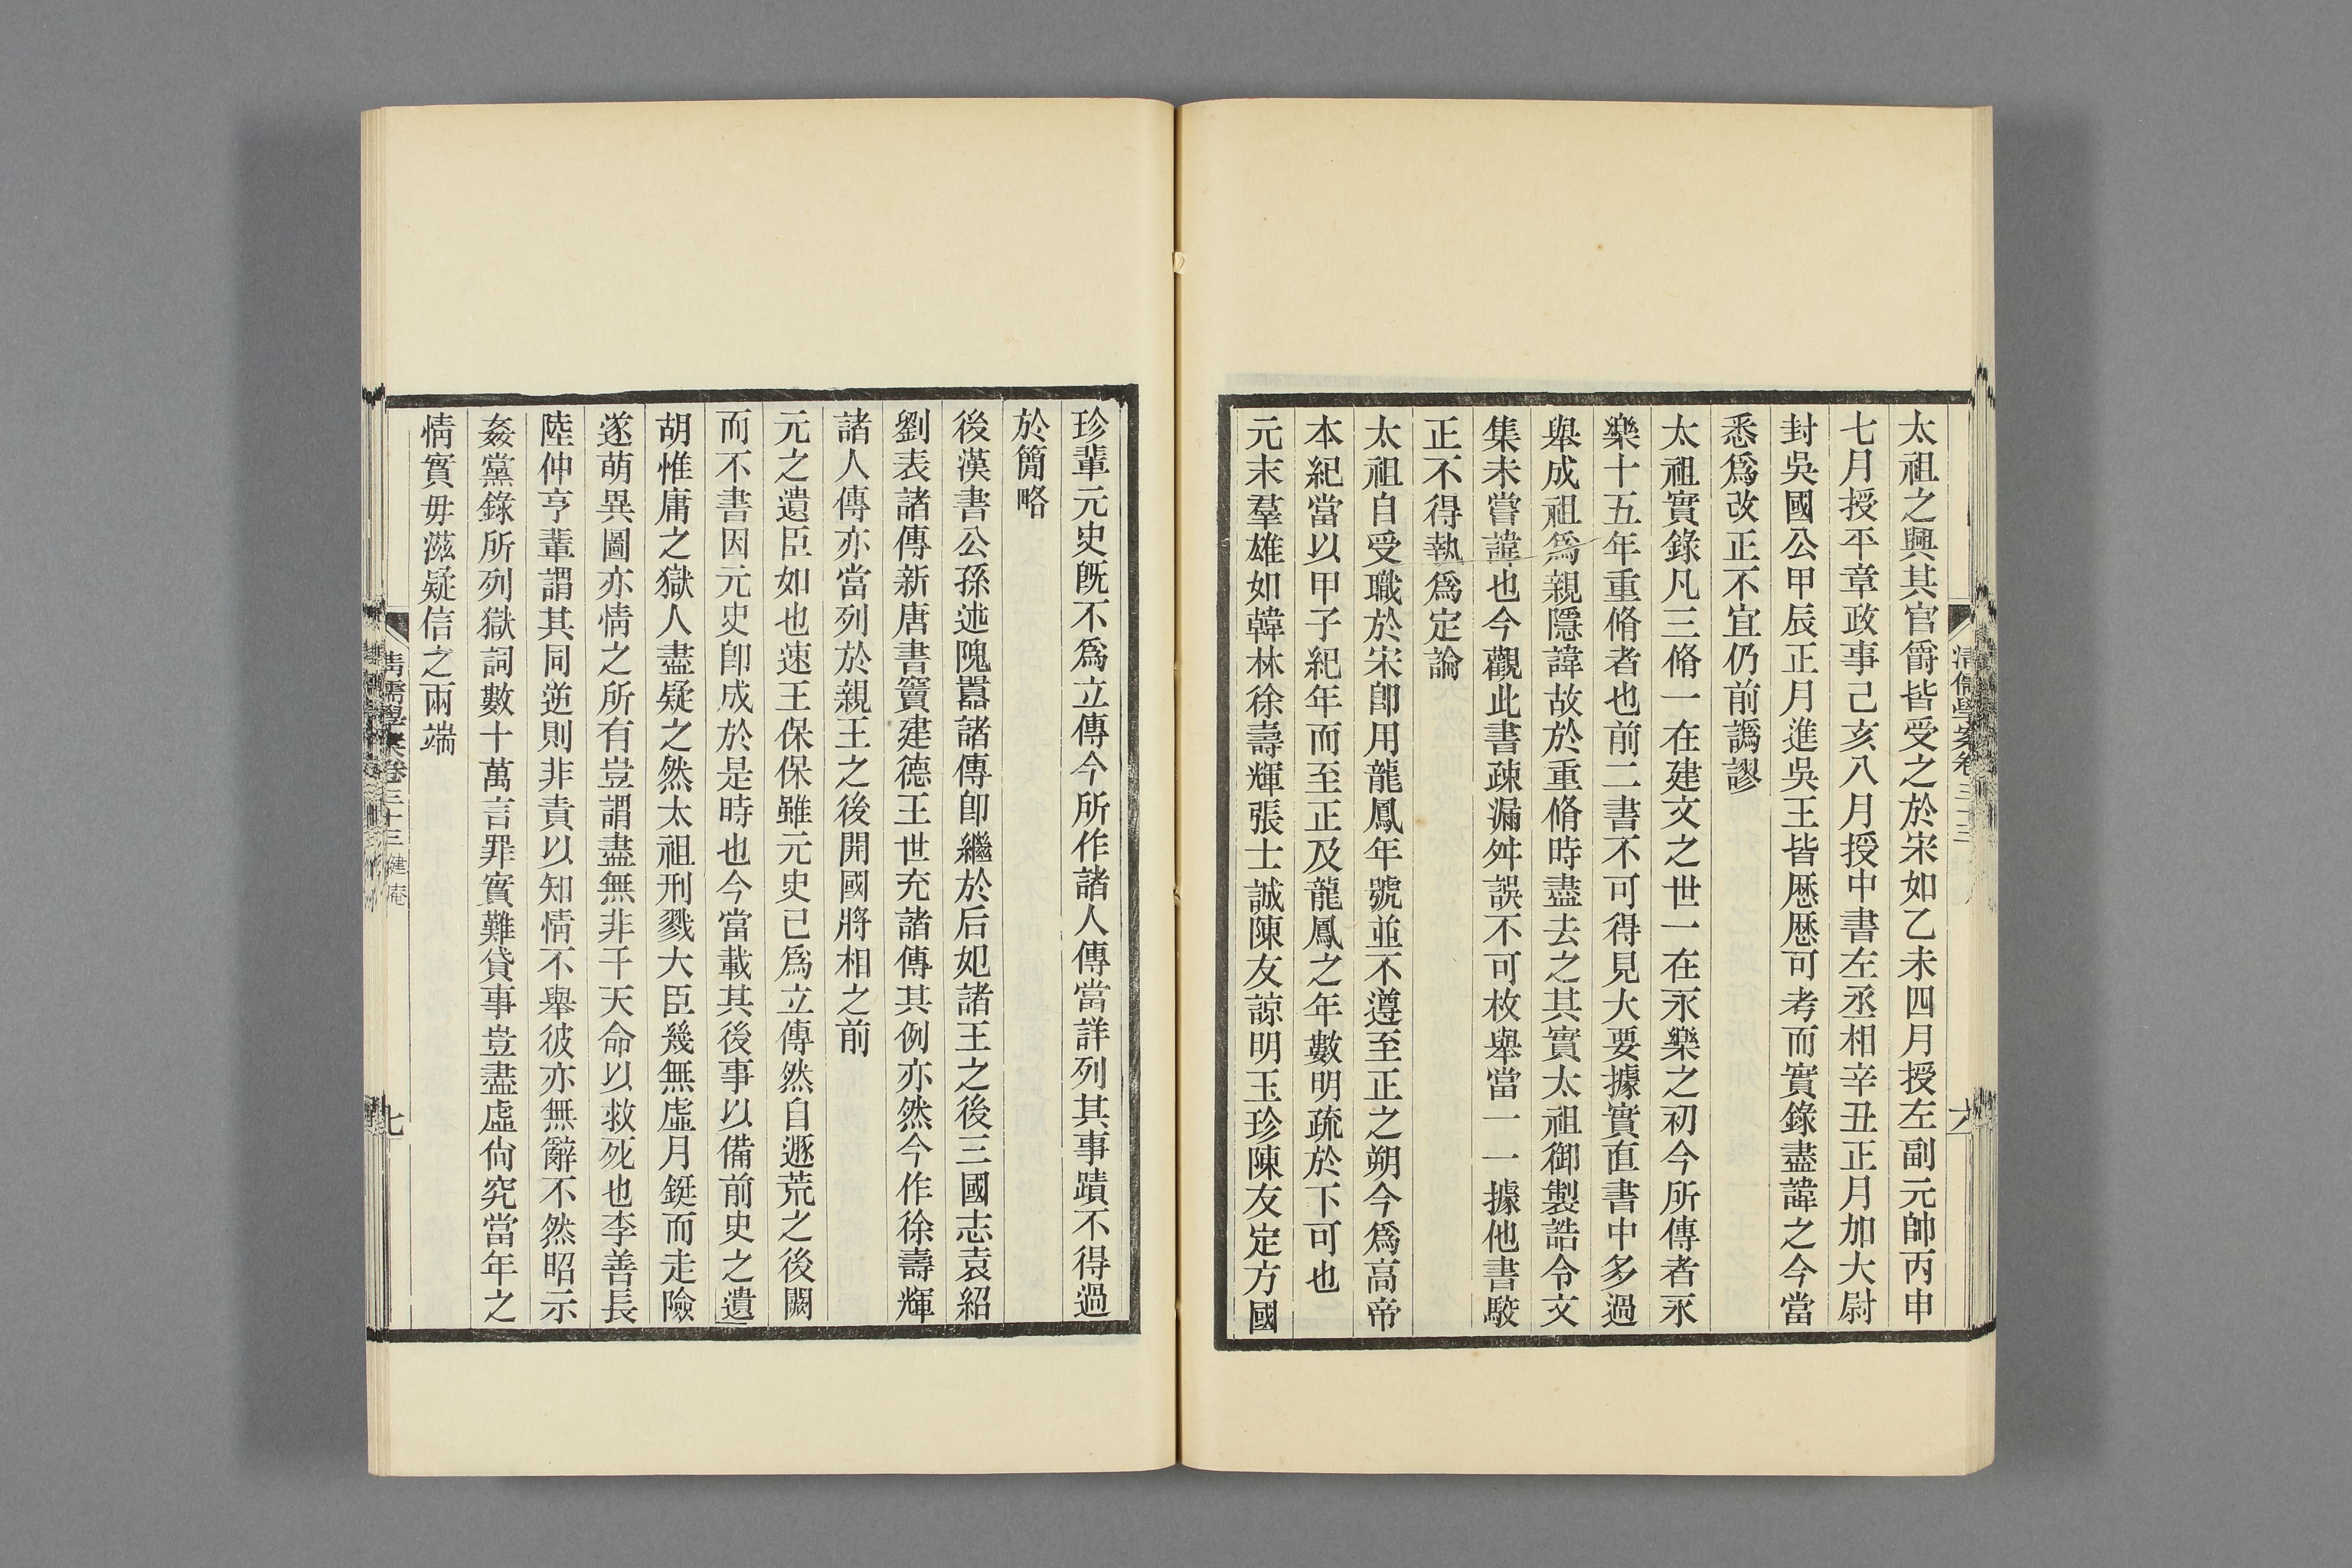 太祖之興其官爵皆受之於宋如乙未四月授左副元帥丙申
七月授平章政事己亥八月授中書左丞相辛丑正月加大尉
封吳國公甲辰正月進吳王皆歷歷可考而實錄盡諱之今當
悉爲改正不宜仍前譌謬
太祖實錄凡三脩一在建文之世一在永樂之初今所傳者永
樂十五年重脩者也前二書不可得見大要據實直書中多過
舉成祖爲親隱諱故於重脩時盡去之其實太祖御製誥令文
集未嘗諱也今觀此書疎漏舛誤不可枚舉當一一據他書駮
正不得執爲定論
太祖自受職於宋卽用龍鳳年號並不遵至正之朔今爲高帝
本紀當以甲子紀年而至正及龍鳳之年數明疏於下可也
元末羣雄如韓林徐壽輝張士誠陳友諒明玉珍陳友定方國
珍輩元史旣不爲立傳今所作諸人傳當詳列其事蹟不得過
於簡略
後漢書公孫述隗囂諸傳卽繼於后妃諸王之後三國志袁紹
劉表諸傳新唐書竇建德王世充諸傳其例亦然今作徐壽輝
諸人傳亦當列於親王之後開國將相之前
元之遺臣如也速王保保雖元史已爲立傳然自遯荒之後闕
而不書因元史卽成於是時也今當載其後事以備前史之遺
胡惟庸之獄人盡疑之然太祖刑戮大臣幾無虛月鋌而走險
遂萌異圖亦情之所有豈謂盡無非干天命以救死也李善長
陸仲亨輩謂其同逆則非責以知情不舉彼亦無辭不然昭示
姦黨錄所列獄詞數十萬言罪實難貸事豈盡虛尙究當年之
情實毋滋疑信之兩端
清儒學案卷三十三 健庵
七